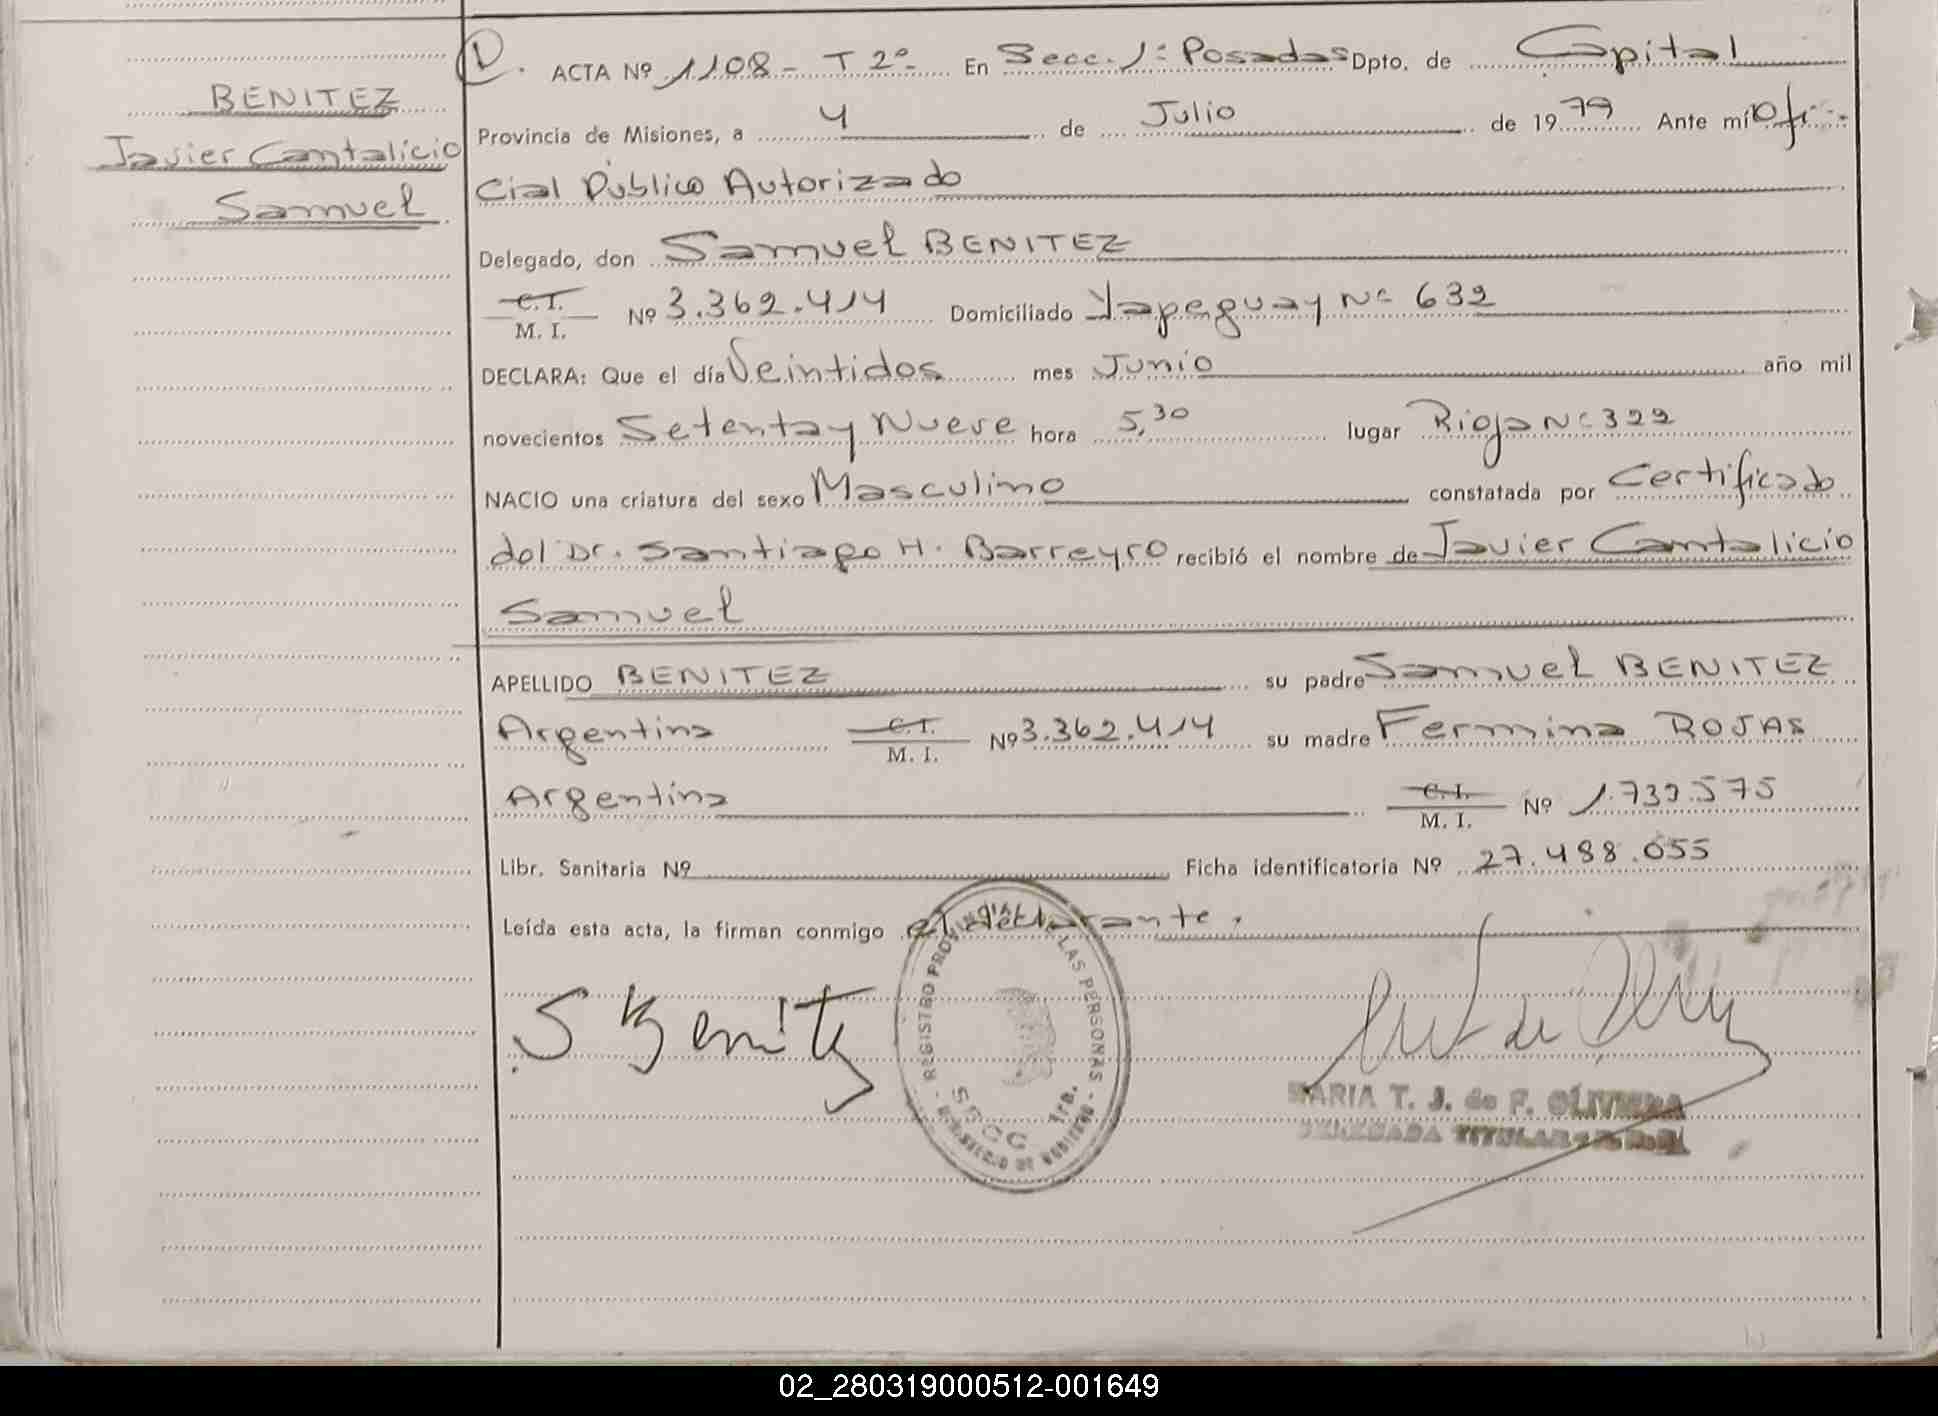 BENITEZ
Javier Cantalicio
Samuel
1. ACTA Nº 1108 - T 2º- En Secc. 1ª Posadas Dpto. de Capital
Provincia de Misiones, a 4 de Julio de 1979 Ante mí Ofi-
cial Público Autorizado
Delegado, don Samuel BENITEZ
C.I.
M. I. Nº 3.362.414 Domiciliado Yapeguay Nº 632
DECLARA: Que el día Veintidos mes Junio año mil
novecientos Setenta y Nueve hora 5,30 lugar Rioja Nº 322
NACIO una criatura del sexo Masculino constatada por Certificado
del Dr. Santiago H. Barreyro recibió el nombre de Javier Cantalicio
Samuel
APELLIDO BENITEZ su padre Samuel BENITEZ
Argentina C.I.
M. I. Nº 3.362.414 su madre Fermina ROJAS
Argentina C.I.
M. I. Nº 1.739.575
Libr. Sanitaria Nº Ficha identificatoria Nº 27.488.055
Leída esta acta, la firman conmigo el declarante.
S Benitez
REGISTRO PROVINCIAL DE LAS PERSONAS
SECC 1ra.
MINISTERIO DE GOBIERNO
MARIA T. J. de F. OLIVEIRA
DELEGADA TITULAR
02_280319000512-001649